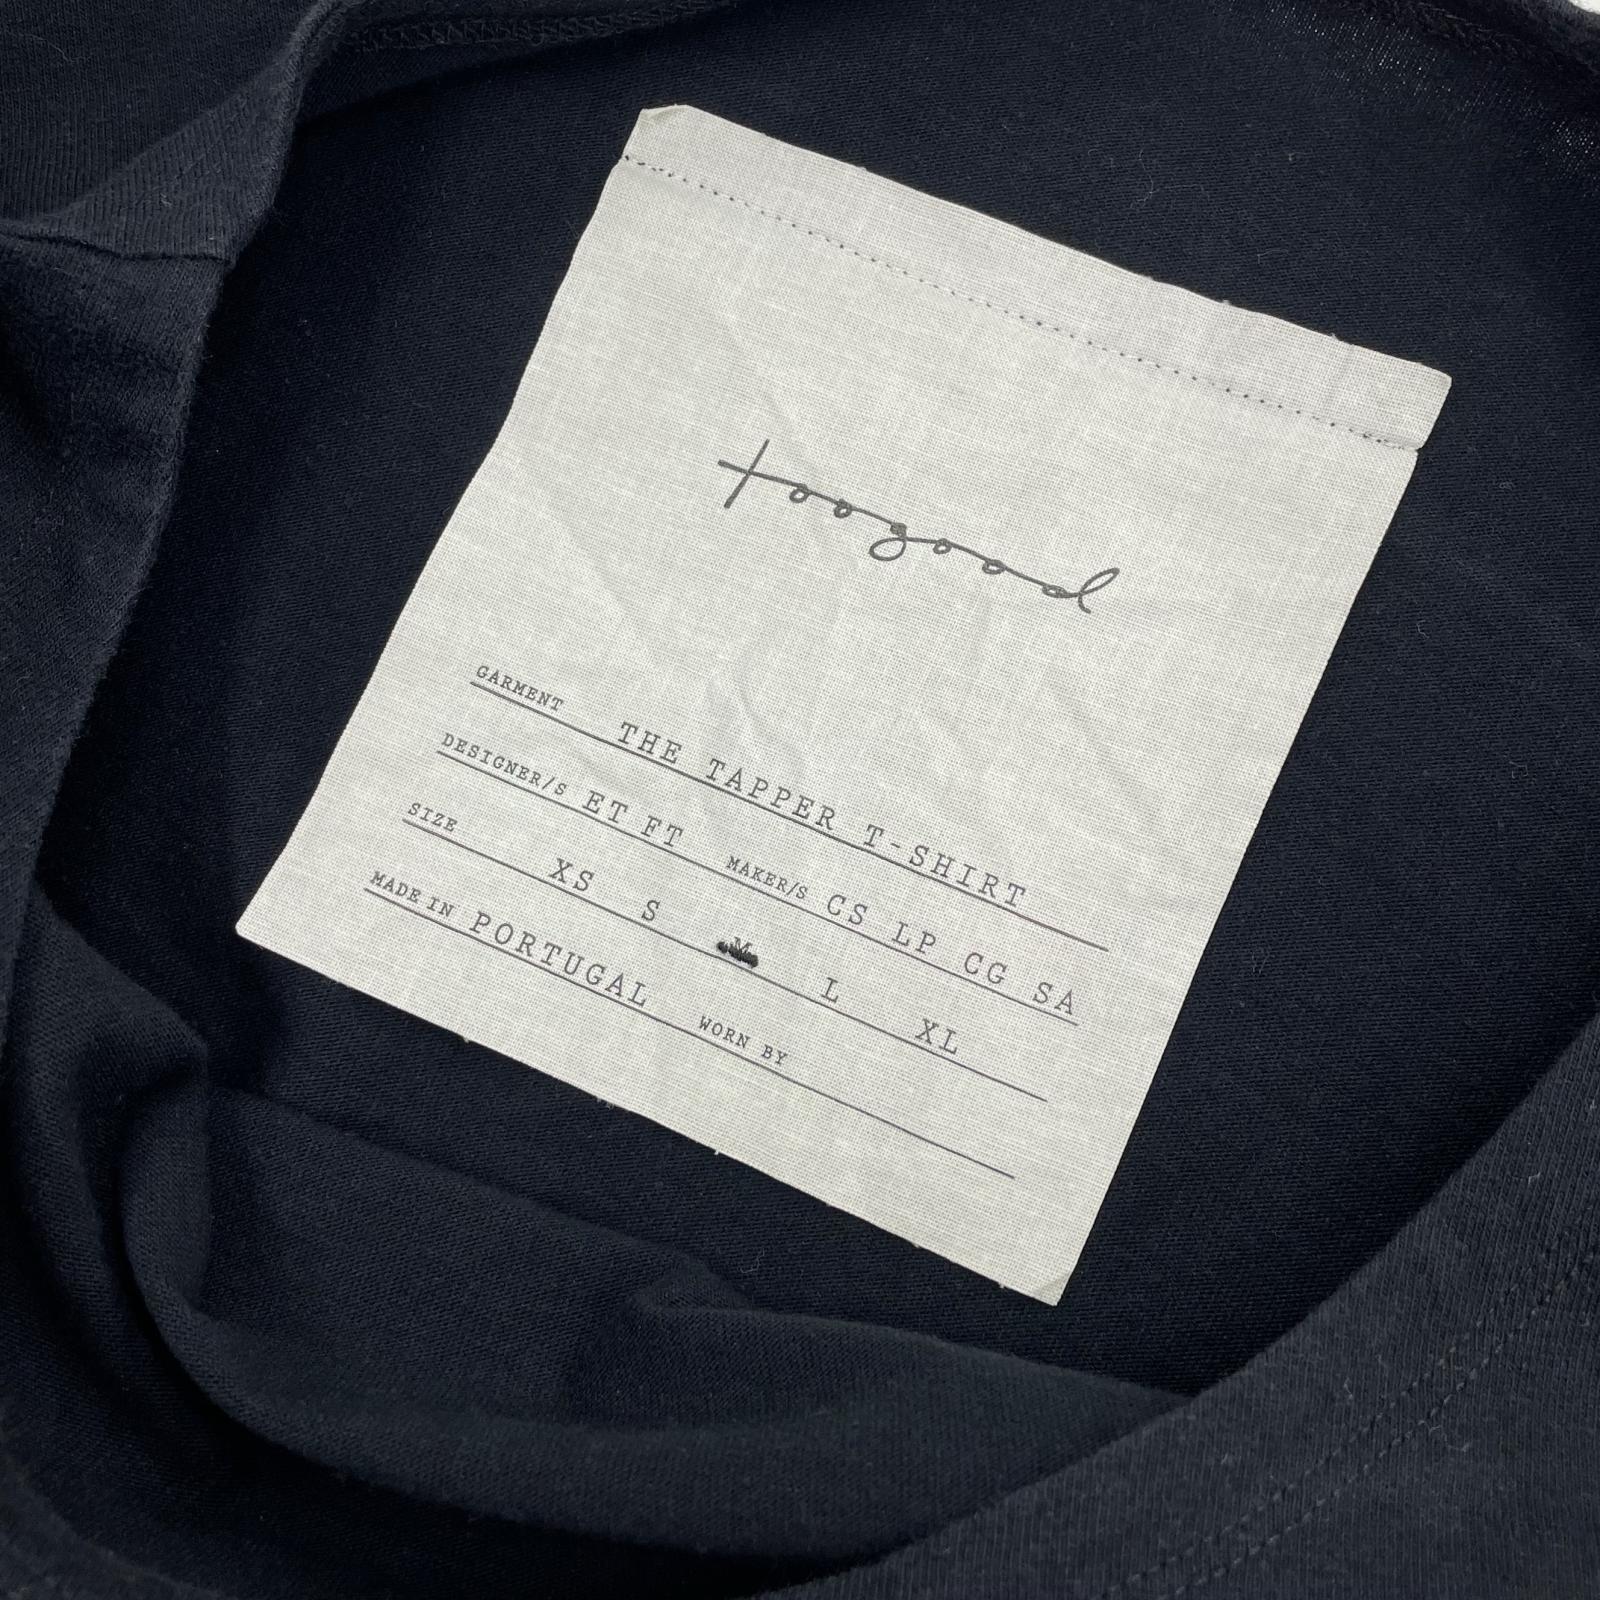 toogood
GARMENT THE TAPPER T-SHIRT
DESIGNER/S ET FT MAKER/S CS LP CG SA
SIZE XS S M L XL
MADE IN PORTUGAL WORN BY